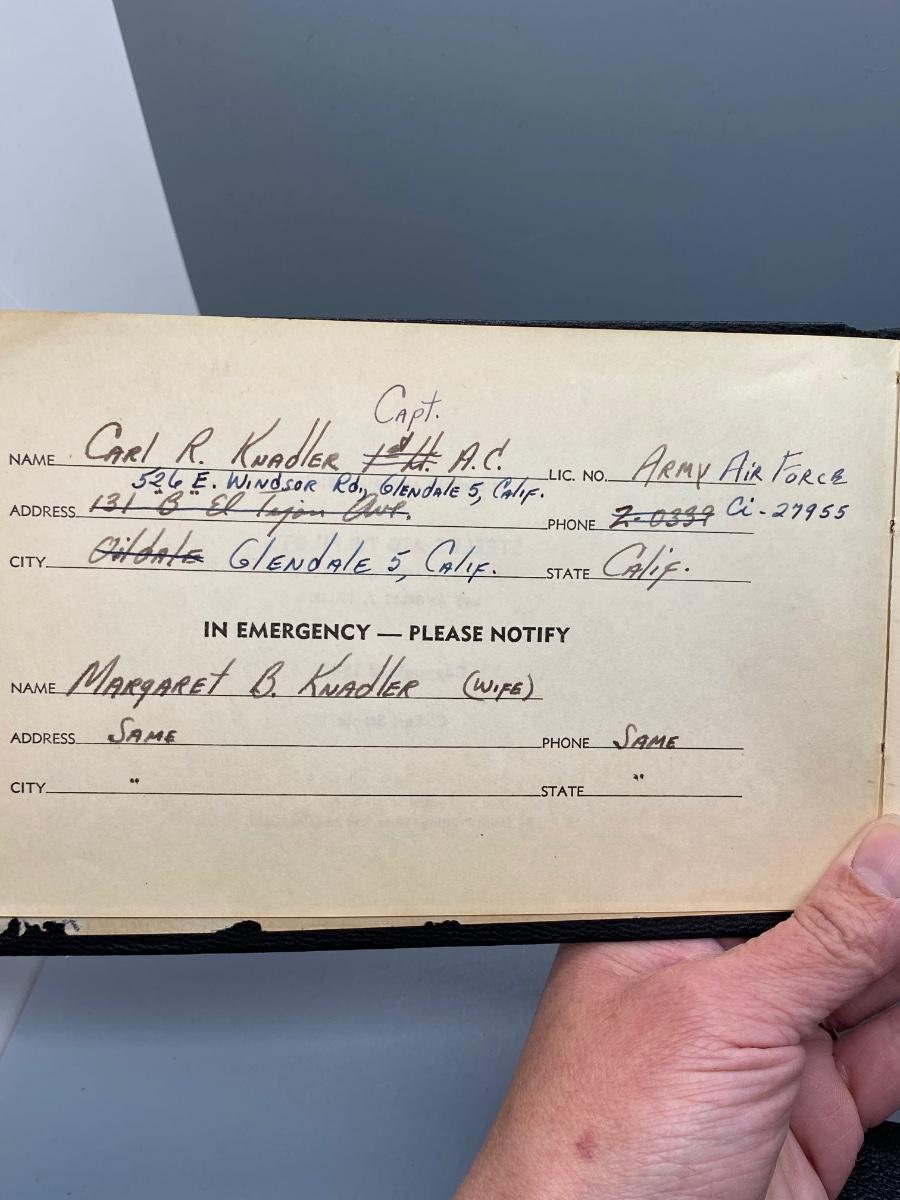 Capt.
NAME Carl R. Knadler 1st Lt. A.C. LIC. NO. Army Air Force
526 E. Windsor Rd., Glendale 5, Calif.
ADDRESS 131 "B" El Tejon Ave. PHONE 2-0339 Ci-27955
CITY Oildale Glendale 5, Calif. STATE Calif.
IN EMERGENCY — PLEASE NOTIFY
NAME Margaret B. Knadler (Wife)
ADDRESS Same PHONE Same
CITY " STATE "